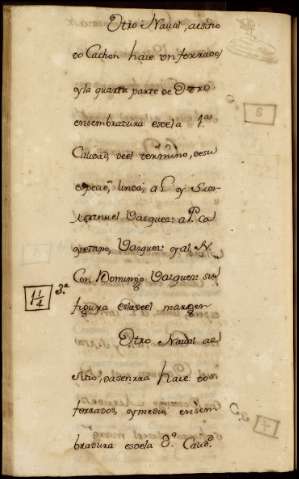 Otro Naval, al sitio
do Cachon hace un ferrado,
y la quarta parte de Otro
ensembradura es de la 1ª
Calidad, de el termino, de su
especie, linda, a L y S con
Manuel Vazquez: al P. Ca
yetano, Vazquez y al N
Con Domingo Vazquez su
figura la de el margen
1 1/4 3ª
Otro Naval al
sitio, da senrra hace dos
ferrados, y medio ensem
bradura es de la 3ª Calid.